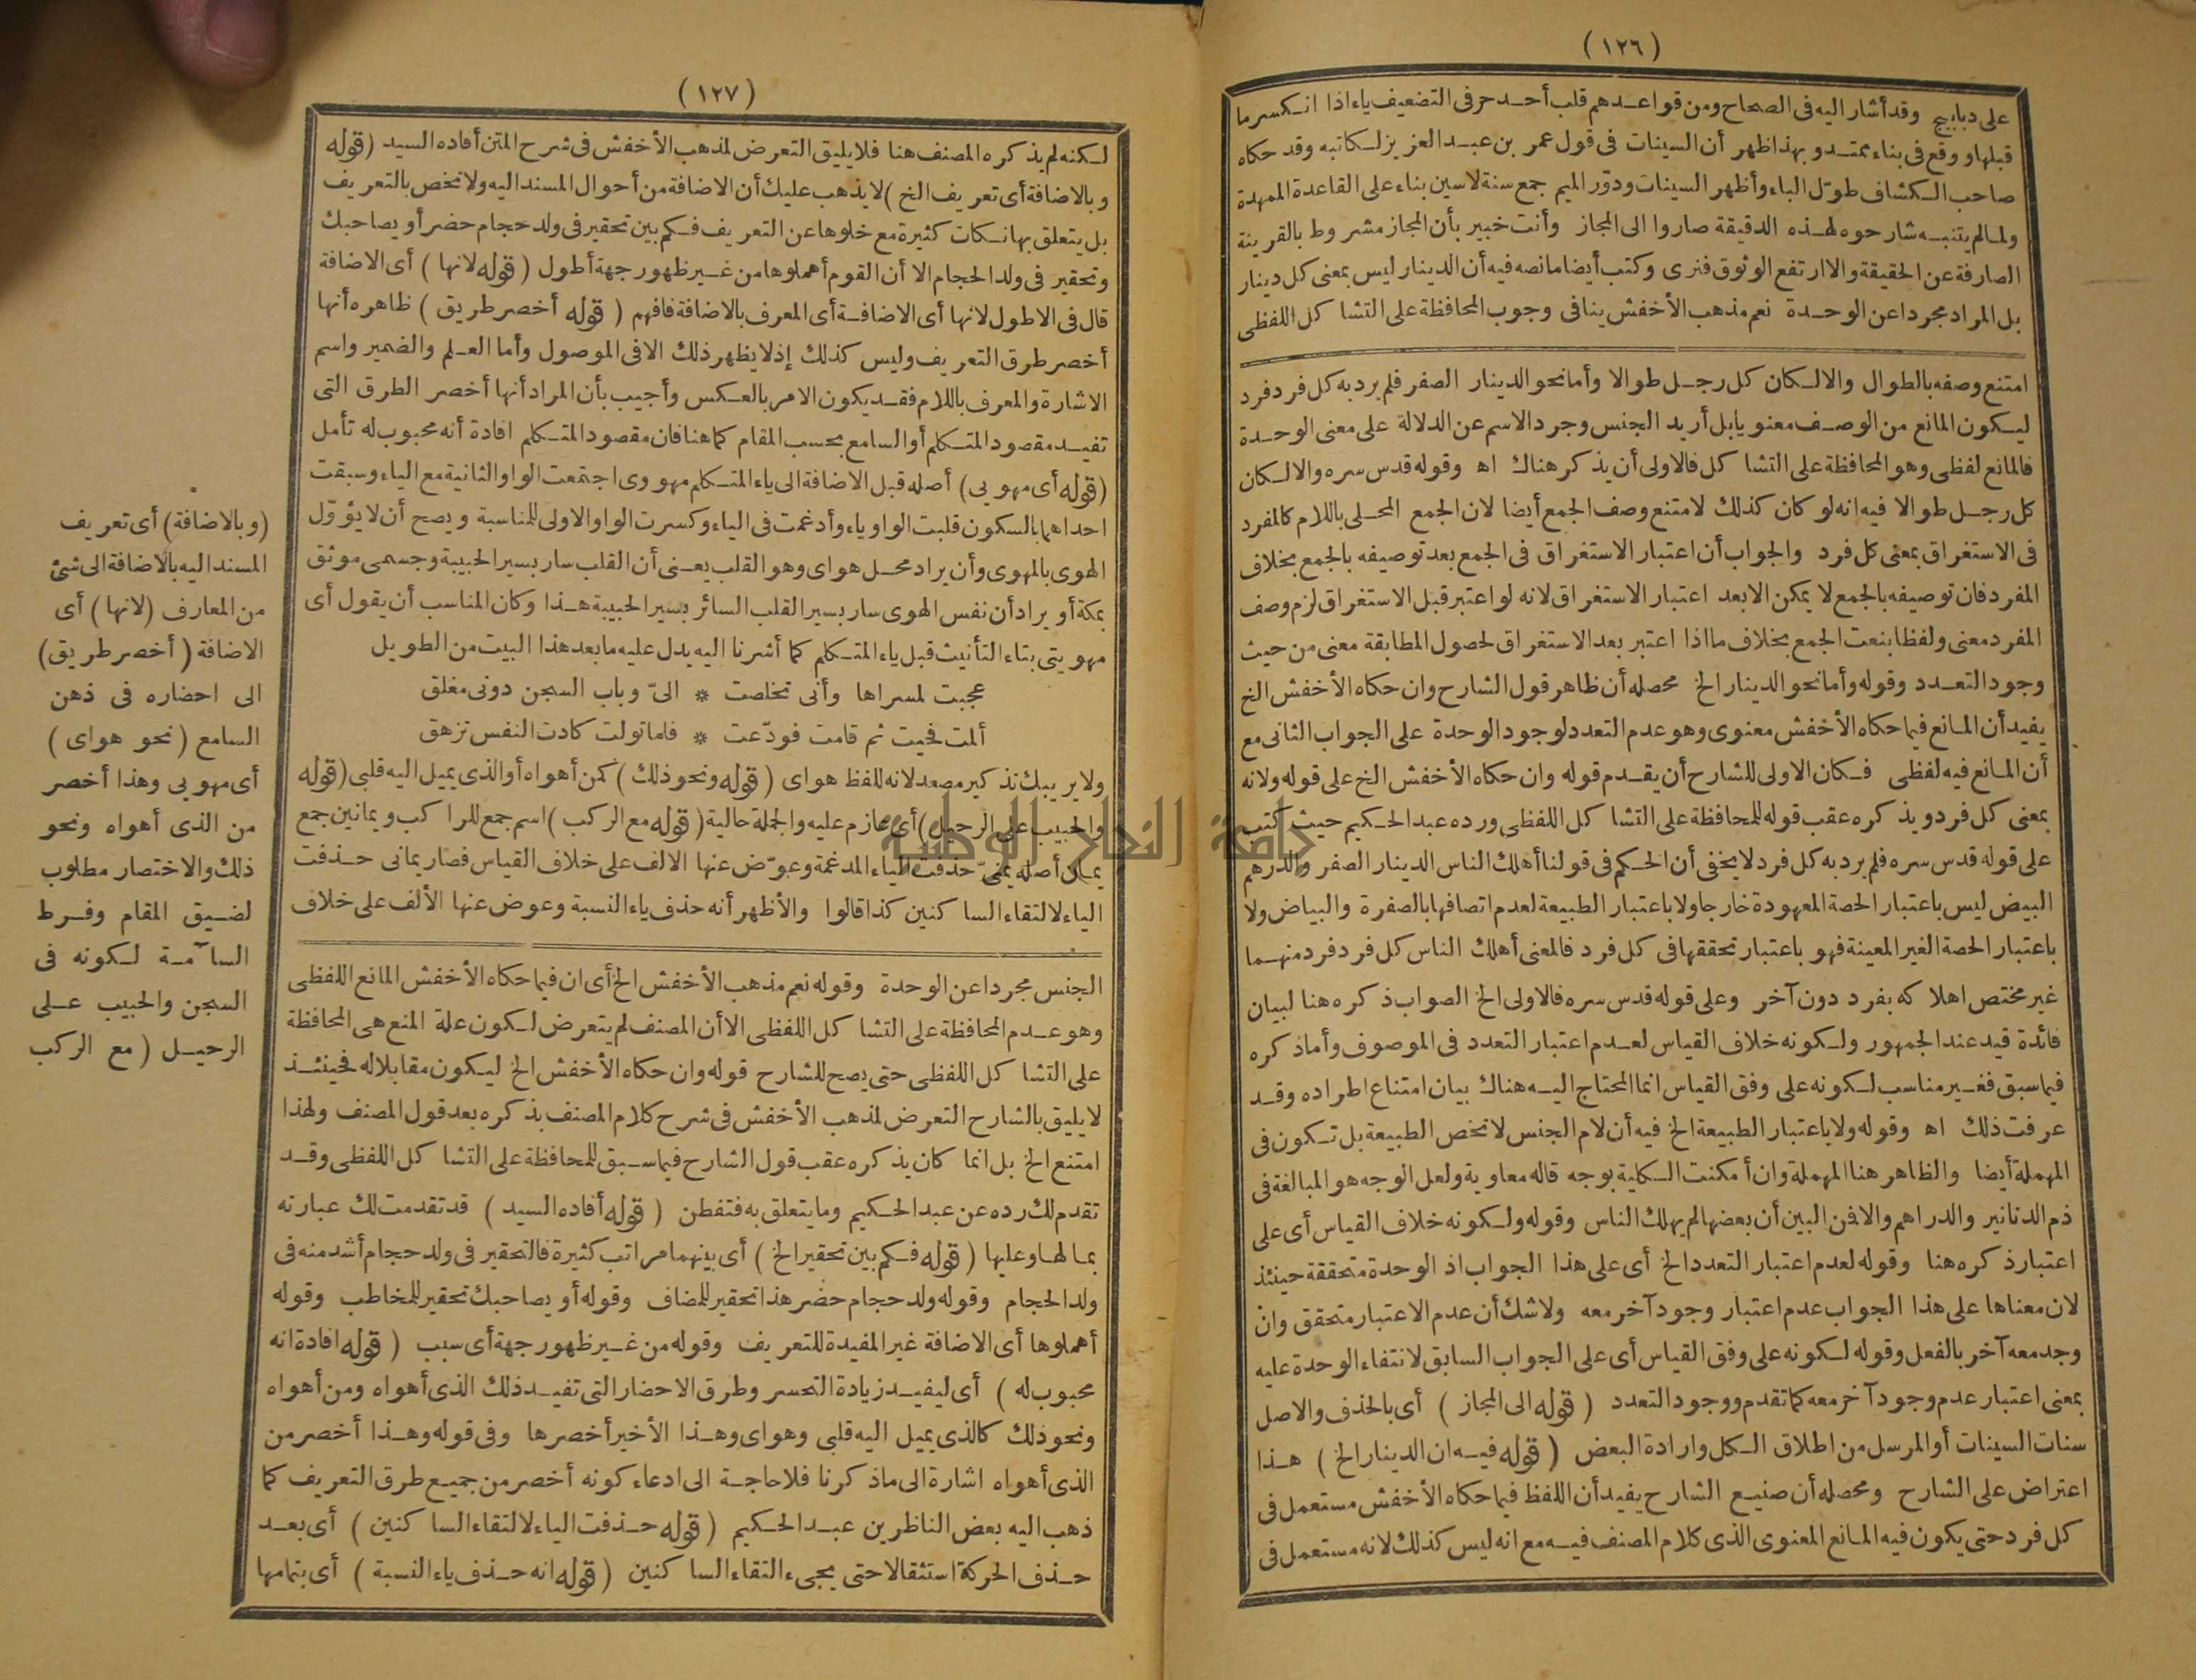 (١٢٦)
على دبابيج وقد أشار اليه فى الصحاح ومن قواعدهم قلب أحد حرفى التضعيف ياء اذا انكسر ما
قبلها ووقع فى بناء ممتد وبهذا ظهر أن السينات فى قول عمر بن عبد العزيز لكاتبه وقد حكاه
صاحب الكشاف طوّل الباء وأظهر السينات ودوّر الميم جمع سنة لا سين بناء على القاعدة الممهدة
ولما لم يتنبه شارحوه لهذه الدقيقة صاروا الى المجاز وأنت خبير بأن المجاز مشروط بالقرينة
الصارفة عن الحقيقة والا ارتفع الوثوق فنرى وكتب أيضا ما نصه فيه أن الدينار ليس بمعنى كل دينار
بل المراد مجردا عن الوحدة نعم مذهب الأخفش ينافى وجوب المحافظة على التشا كل اللفظى
امتنع وصفه بالطوال والا لكان كل رجل طوالا وأما نحو الدينار الصفر فلم يرد به كل فرد فرد
ليكون المانع من الوصف معنويا بل أريد الجنس وجرد الاسم عن الدلالة على معنى الوحدة
فالمانع لفظى وهو المحافظة على التشا كل فالاولى أن يذكر هناك اه وقوله قدس سره والا لكان
كل رجل طوالا فيه انه لو كان كذلك لامتنع وصف الجمع أيضا لان الجمع المحلى باللام كالمفرد
فى الاستغراق بمعنى كل فرد والجواب أن اعتبار الاستغراق فى الجمع بعد توصيفه بالجمع بخلاف
المفرد فان توصيفه بالجمع لا يمكن الا بعد اعتبار الاستغراق لانه لو اعتبر قبل الاستغراق لزم وصف
المفرد معنى ولفظا بنعت الجمع بخلاف ما اذا اعتبر بعد الاستغراق لحصول المطابقة معنى من حيث
وجود التعدد وقوله وأما نحو الدينار الخ محصله أن ظاهر قول الشارح وان حكاه الأخفش الخ
يفيد أن المانع فيما حكاه الأخفش معنوى وهو عدم التعدد لوجود الوحدة على الجواب الثانى مع
أن المانع فيه لفظى فكان الاولى للشارح أن يقدم قوله وان حكاه الأخفش الخ على قوله ولانه
بمعنى كل فرد ويذكره عقب قوله للمحافظة على التشا كل اللفظى ورده عبد الحكيم حيث كتب
على قوله قدس سره فلم يرد به كل فرد لا يخفى أن الحكم فى قولنا أهلك الناس الدينار الصفر والدرهم
البيض ليس باعتبار الحصة المعهودة خارجا ولا باعتبار الطبيعة لعدم اتصافها بالصفرة والبياض ولا
باعتبار الحصة الغير المعينة فهو باعتبار تحققها فى كل فرد فالمعنى أهلك الناس كل فرد فرد منهما
غير مختص اهلا كه بفرد دون آخر وعلى قوله قدس سره فالاولى الخ الصواب ذكره هنا لبيان
فائدة قيد عند الجمهور ولكونه خلاف القياس لعدم اعتبار التعدد فى الموصوف وأما ذكره
فيما سبق فغير مناسب لكونه على وفق القياس انما المحتاج اليه هناك بيان امتناع اطراده وقد
عرفت ذلك اه وقوله ولا باعتبار الطبيعة الخ فيه أن لام الجنس لا تخص الطبيعة بل تكون فى
المهملة أيضا والظاهر هنا المهملة وان أمكنت الكلية بوجه قاله معاوية ولعل الوجه هو المبالغة فى
ذم الدنانير والدراهم والا فمن البين أن بعضها لم يهلك الناس وقوله ولكونه خلاف القياس أى على
اعتبار ذكره هنا وقوله لعدم اعتبار التعدد الخ أى على هذا الجواب اذ الوحدة متحققة حينئذ
لان معناها على هذا الجواب عدم اعتبار وجود آخر معه ولا شك أن عدم الاعتبار متحقق وان
وجد معه آخر بالفعل وقوله لكونه على وفق القياس أى على الجواب السابق لانتفاء الوحدة عليه
بمعنى اعتبار عدم وجود آخر معه كما تقدم ووجود التعدد (قوله الى المجاز) أى بالحذف والاصل
سنات السينات أو المرسل من اطلاق الكل وارادة البعض (قوله فيه ان الدينار الخ) هذا
اعتراض على الشارح ومحصله أن صنيع الشارح يفيد أن اللفظ فيما حكاه الأخفش مستعمل فى
كل فرد حتى يكون فيه المانع المعنوى الذى كلام المصنف فيه مع انه ليس كذلك لانه مستعمل فى
(١٢٧)
لكنه لم يذكره المصنف هنا فلا يليق التعرض لمذهب الأخفش فى شرح المتن أفاده السيد (قوله
وبالاضافة أى تعريف الخ) لا يذهب عليك أن الاضافة من أحوال المسند اليه ولا تخص بالتعريف
بل يتعلق بها نكات كثيرة مع خلوها عن التعريف فكم بين تحقير فى ولد حجام حضر أو يصاحبك
وتحقير فى ولد الحجام الا أن القوم أهملوها من غير ظهور جهة أطول (قوله لانها) أى الاضافة
قال فى الاطول لانها أى الاضافة أى المعرف بالاضافة فافهم (قوله أخصر طريق) ظاهره أنها
أخصر طرق التعريف وليس كذلك إذ لا يظهر ذلك الا فى الموصول وأما العلم والضمير واسم
الاشارة والمعرف باللام فقد يكون الامر بالعكس وأجيب بأن المراد أنها أخصر الطرق التى
تفيد مقصود المتكلم أو السامع بحسب المقام كما هنا فان مقصود المتكلم افادة أنه محبوب له تأمل
(قوله أى مهويى) أصله قبل الاضافة الى ياء المتكلم مهووى اجتمعت الواو الثانية مع الياء وسبقت
احداهما بالسكون قلبت الواو ياء وأدغمت فى الياء وكسرت الواو الاولى للمناسبة ويصح أن لا يؤوّل
الهوى بالمهوى وأن يراد محل هواى وهو القلب يعنى أن القلب سار بسير الحبيبة وجسمى موثق
بمكة أو يراد أن نفس الهوى سار بسير القلب السائر بسير الحبيبة هذا وكان المناسب أن يقول أى
مهويتى بتاء التأنيث قبل ياء المتكلم كما أشرنا اليه يدل عليه ما بعد هذا البيت من الطويل
عجبت لمسراها وأنى تخلصت * الىّ وباب السجن دونى مغلق
ألمت فحيت ثم قامت فودّعت * فلما تولت كادت النفس تزهق
ولا يريبك تذكير مصعد لانه للفظ هواى (قوله ونحو ذلك) كمن أهواه أو الذى يميل اليه قلبى (قوله
والحبيب على الرحيل) أى عازم عليه والجملة حالية (قوله مع الركب) اسم جمع للرا كب ويمانين جمع
يمان أصله يمنىّ حذفت الياء المدغمة وعوّض عنها الالف على خلاف القياس فصار يمانى حذفت
الياء لالتقاء السا كنين كذا قالوا والأظهر أنه حذف ياء النسبة وعوض عنها الألف على خلاف
الجنس مجردا عن الوحدة وقوله نعم مذهب الأخفش الخ أى ان فيما حكاه الأخفش المانع اللفظى
وهو عدم المحافظة على التشا كل اللفظى الا أن المصنف لم يتعرض لكون علة المنع هى المحافظة
على التشا كل اللفظى حتى يصح للشارح قوله وان حكاه الأخفش الخ ليكون مقابلا له فحينئذ
لا يليق بالشارح التعرض لمذهب الأخفش فى شرح كلام المصنف بذكره بعد قول المصنف ولهذا
امتنع الخ بل انما كان يذكره عقب قول الشارح فيما سبق للمحافظة على التشا كل اللفظى وقد
تقدم لك رده عن عبد الحكيم وما يتعلق به فتفطن (قوله أفاده السيد) قد تقدمت لك عبارته
بما لها وعليها (قوله فكم بين تحقير الخ) أى بينهما مراتب كثيرة فالتحقير فى ولد حجام أشد منه فى
ولد الحجام وقوله ولد حجام حضر هذا تحقير للمضاف وقوله أو يصاحبك تحقير للمخاطب وقوله
أهملوها أى الاضافة غير المفيدة للتعريف وقوله من غير ظهور جهة أى سبب (قوله افادة انه
محبوب له) أى ليفيد زيادة التحسر وطرق الاحضار التى تفيد ذلك الذى أهواه ومن أهواه
ونحو ذلك كالذى يميل اليه قلبى وهواى وهذا الأخير أخصرها وفى قوله وهذا أخصر من
الذى أهواه اشارة الى ماذكرنا فلا حاجة الى ادعاء كونه أخصر من جميع طرق التعريف كما
ذهب اليه بعض الناظرين عبد الحكيم (قوله حذفت الياء لالتقاء السا كنين) أى بعد
حذف الحركة استثقالا حتى يجىء التقاء السا كنين (قوله انه حذف ياء النسبة) أى بتمامها
(وبالاضافة) أى تعريف
المسند اليه بالاضافة الى شئ
من المعارف (لانها) أى
الاضافة (أخصر طريق)
الى احضاره فى ذهن
السامع (نحو هواى)
أى مهويى وهذا أخصر
من الذى أهواه ونحو
ذلك والاختصار مطلوب
لضيق المقام وفرط
السآمة لكونه فى
السجن والحبيب على
الرحيل (مع الركب
جامعة النجاح الوطنية